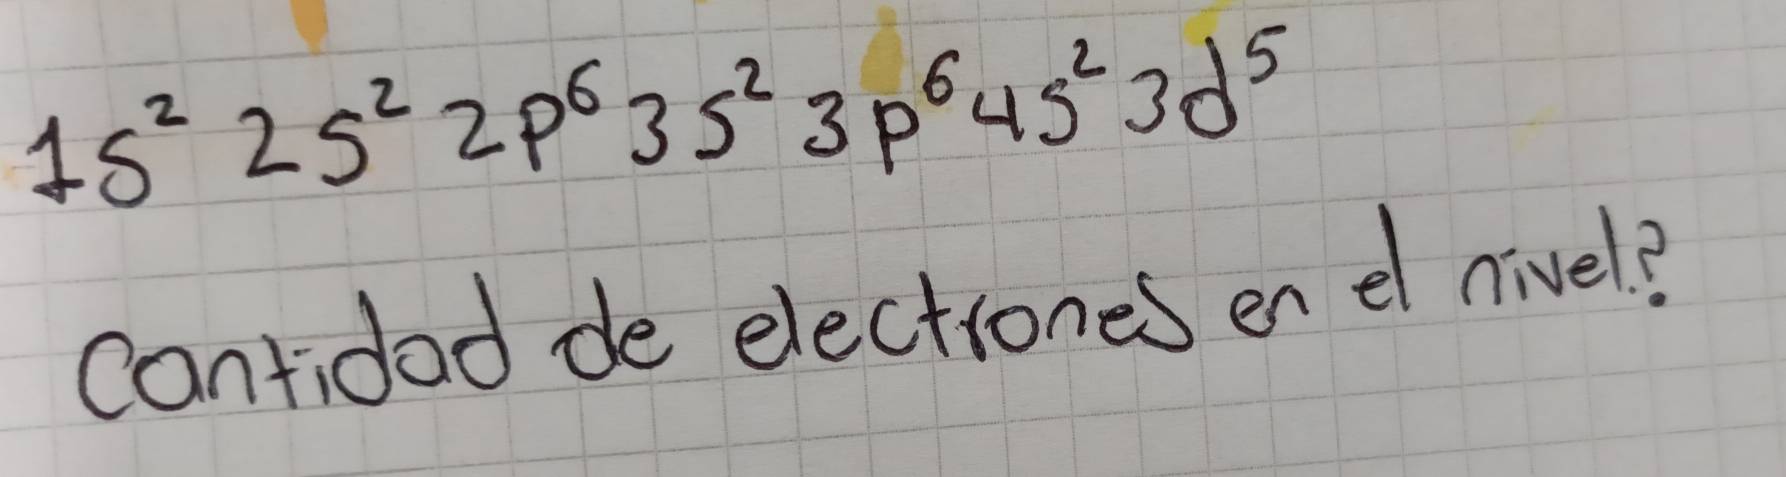 1s² 2s² 2p⁶ 3s² 3p⁶ 4s² 3d⁵
Cantidad de electrones en el nivel?